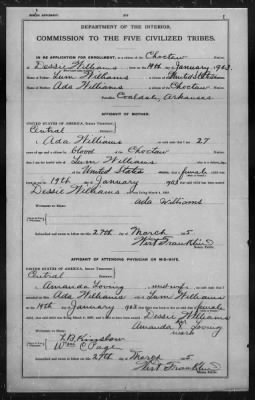 DEPARTMENT OF THE INTERIOR,
COMMISSION TO THE FIVE CIVILIZED TRIBES.
IN RE APPLICATION FOR ENROLLMENT, as a citizen of the Choctaw Nation, of
Dessie Williams, born on the 19th day of January, 1903
Name of Father: Lum Williams a citizen of the United States Nation.
Name of Mother: Ada Williams a citizen of the Choctaw Nation.
Postoffice Coaldale, Arkansas
AFFIDAVIT OF MOTHER.
UNITED STATES OF AMERICA, Indian Territory,
Central District.
I, Ada Williams, on oath state that I am 27
years of age and a citizen by blood, of the Choctaw Nation;
that I am the lawful wife of Lum Williams, who is a citizen, by
of the United States Nation; that a female child was
born to me on 19th day of January, 1903, that said child has been named
Dessie Williams, and was living March 4, 1905.
Ada Williams
Subscribed and sworn to before me this 27th day of March, 1905
Wirt Franklin
Notary Public.
AFFIDAVIT OF ATTENDING PHYSICIAN OR MID-WIFE.
UNITED STATES OF AMERICA, Indian Territory,
Central District.
I, Amanda Loving, a mid-wife, on oath state that I
attended on Mrs. Ada Williams, wife of Lum Williams
on the 19th day of January, 1903, that there was born to her on said date a female
child; that said child was living March 4, 1905, and is said to have been named Dessie Williams
her
Amanda X Loving
mark
Subscribed and sworn to before me this 27th day of March, 1905
Wirt Franklin
Notary Public.